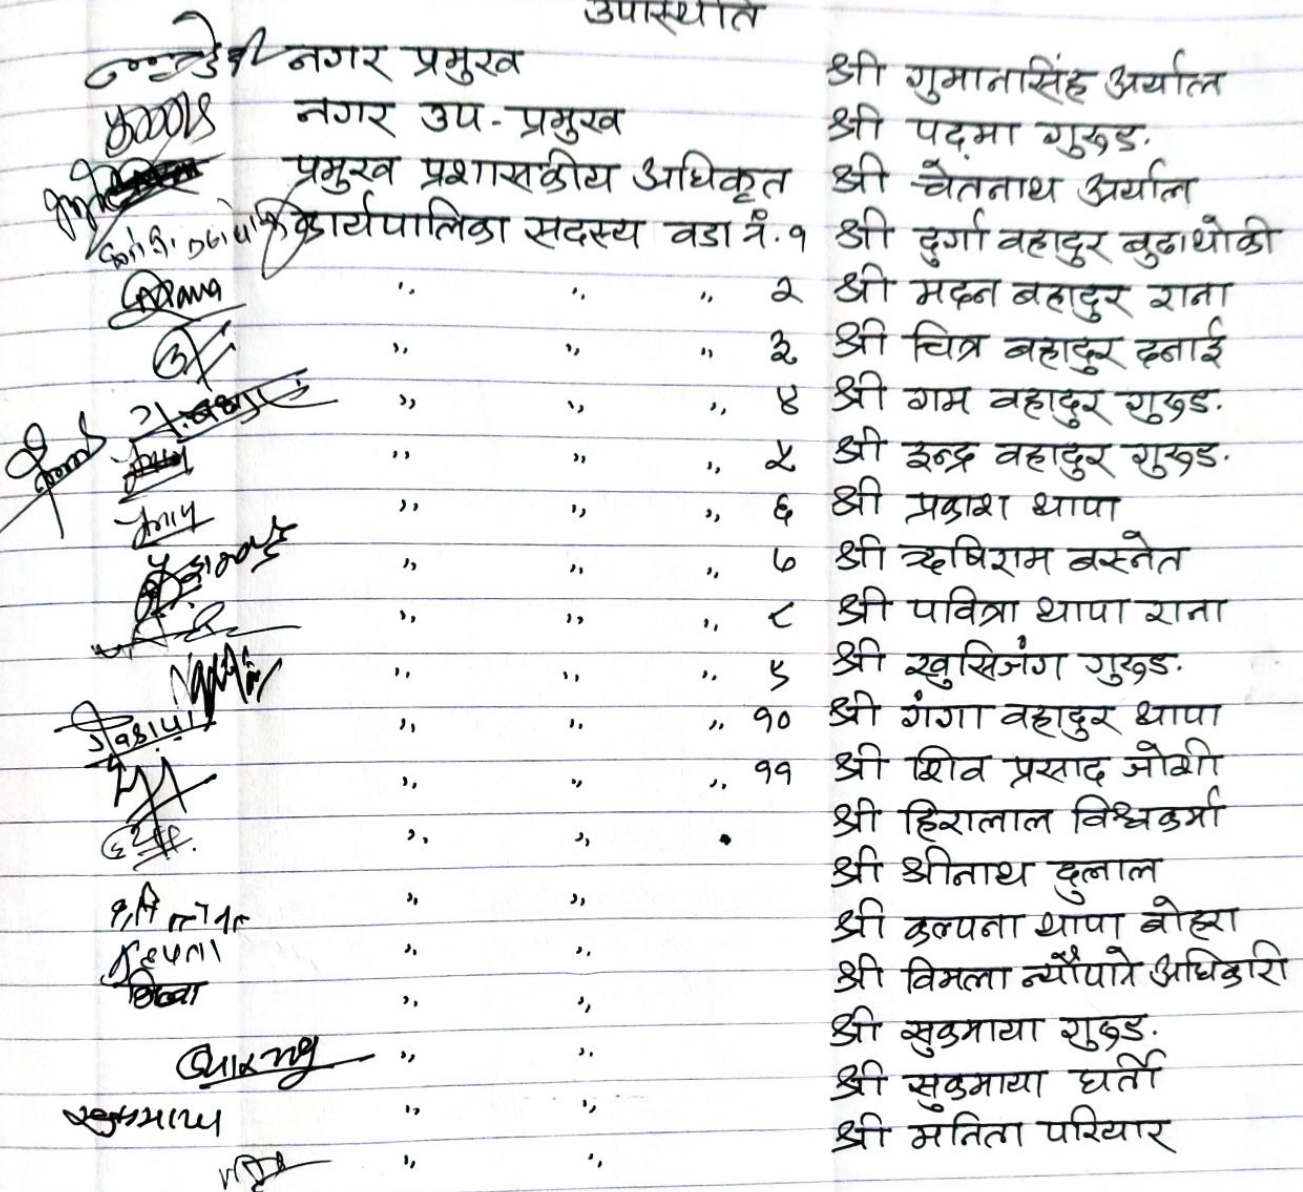 उपस्थिति
नगर प्रमुख श्री गुमानसिंह अर्याल
नगर उप-प्रमुख श्री पदमा गुरुङ.
प्रमुख प्रशासकीय अधिकृत श्री चेतनाथ अर्याल
कार्यपालिका सदस्य वडा नं. १ श्री दुर्गा वहादुर बुढाथोकी
,, ,, ,, २ श्री मदन बहादुर राना
,, ,, ,, ३ श्री चित्र बहादुर दनाई
,, ,, ,, ४ श्री गम वहादुर गुरुङ.
,, ,, ,, ५ श्री इन्द्र वहादुर गुरुङ.
,, ,, ,, ६ श्री प्रकाश थापा
,, ,, ,, ७ श्री ऋषिराम बस्नेत
,, ,, ,, ८ श्री पवित्रा थापा राना
,, ,, ,, ९ श्री खुसिजंग गुरुङ.
,, ,, ,, १० श्री गंगा वहादुर थापा
,, ,, ,, ११ श्री शिव प्रसाद जोशी
,, ,, श्री हिरालाल विश्वकर्मा
,, ,, श्री श्रीनाथ दुलाल
,, ,, श्री कल्पना थापा बोहरा
,, ,, श्री विमला न्यौपाने अधिकारी
,, ,, श्री सुकमाया गुरुङ.
,, ,, श्री सुकमाया घर्ती
,, ,, श्री मनिता परियार